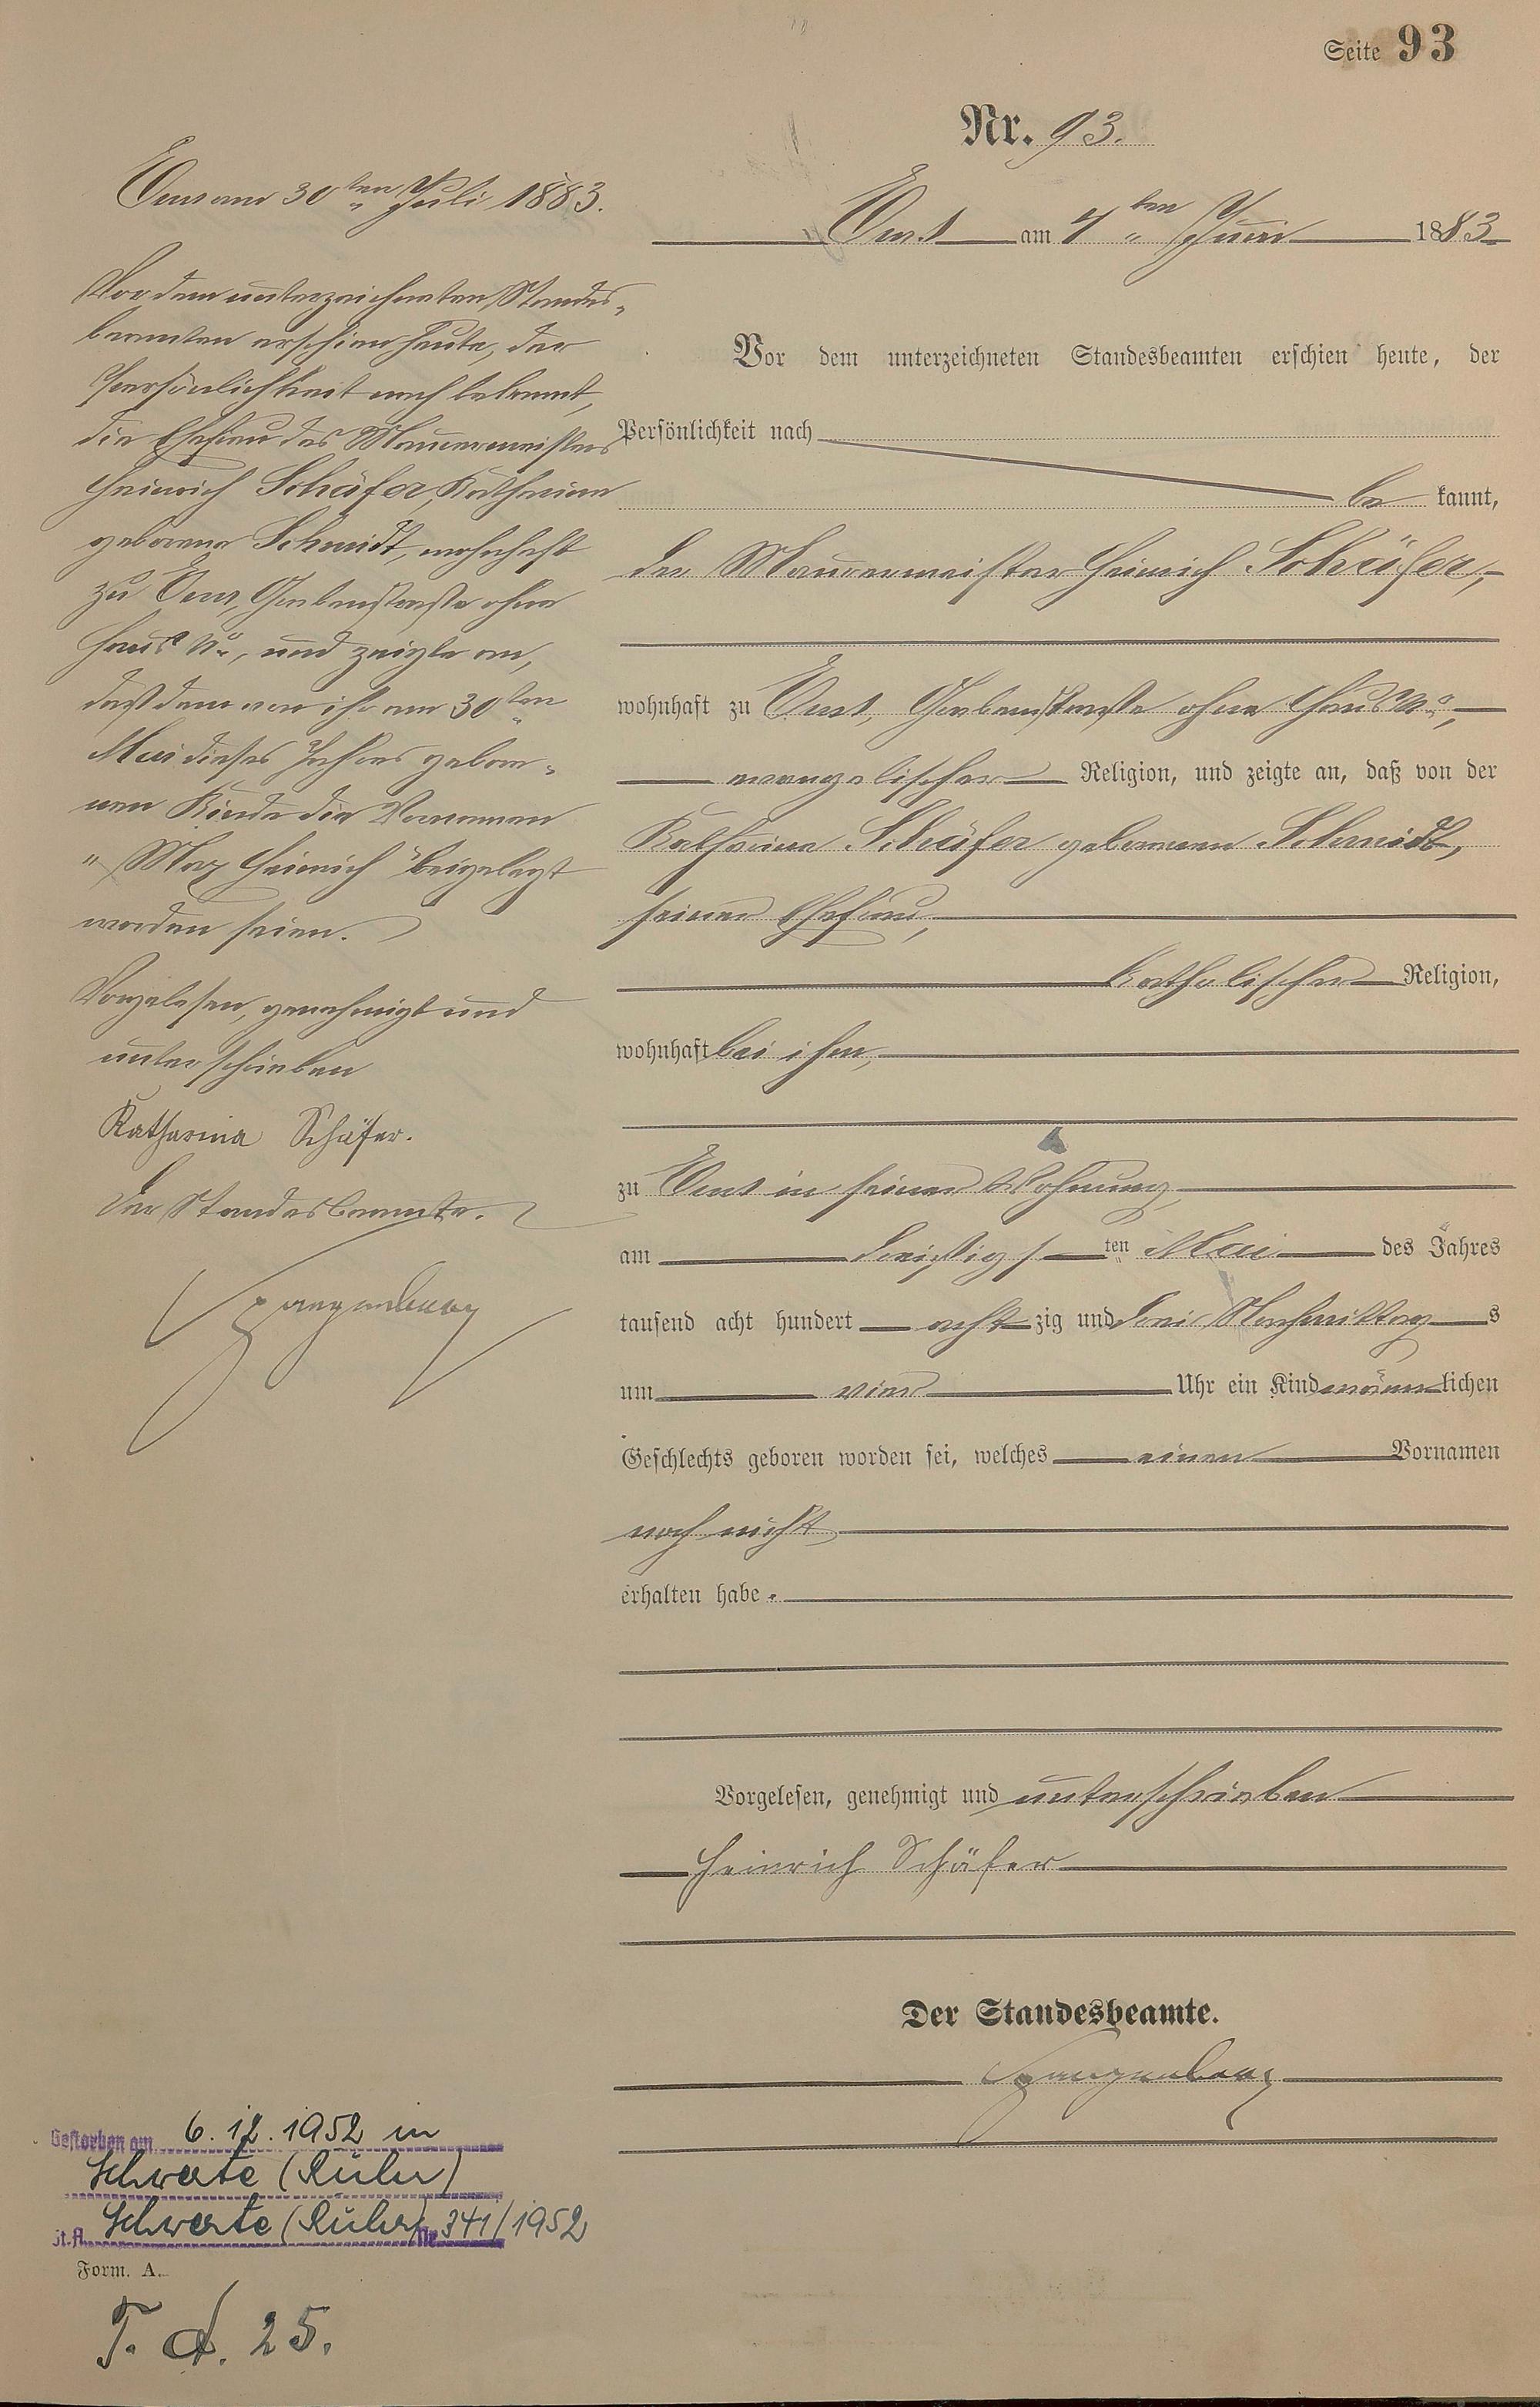 Seite 93
Nr. 93.
Ems am 4ten Juni 1883
Vor dem unterzeichneten Standesbeamten erschien heute, der
Persönlichkeit nach
be kannt,
der Maurermeister Heinrich Schäfer,
wohnhaft zu Ems, Grabenstraße ohne Haus No,
evangelischer Religion, und zeigte an, daß von der
Katharina Schäfer geborenen Schmidt,
seiner Ehefrau,
katholischer Religion,
wohnhaft bei ihm,
zu Ems in seiner Wohnung,
am dreißigsten Mai des Jahres
tausend acht hundert achtzig und drei Nachmittags
um vier Uhr ein Kind männlichen
Geschlechts geboren worden sei, welches einen Vornamen
noch nicht
erhalten habe.
Vorgelesen, genehmigt und unterschrieben
Heinrich Schäfer
Der Standesbeamte.
Spangenberg
Ems am 30ten Juli 1883.
Vor dem unterzeichneten Standes-
beamten erschien heute, der
Persönlichkeit nach bekannt,
die Ehefrau des Maurermeisters
Heinrich Schäfer, Katharina
geborene Schmidt, wohnhaft
zu Ems, Grabenstraße ohne
Haus No, und zeigte an,
daß dem von ihr am 30ten
Mai dieses Jahres gebore-
nen Kinde die Vornamen
"Max Heinrich" beigelegt
worden seien.
Vorgelesen, genehmigt und
unterschrieben
Katharina Schäfer.
Der Standesbeamte.
Spangenberg
Gestorben am 6.12.1952 in
Schwerte (Ruhr)
St.A. Schwerte (Ruhr) Nr. 341/1952
Form. A.
T. d. 25.